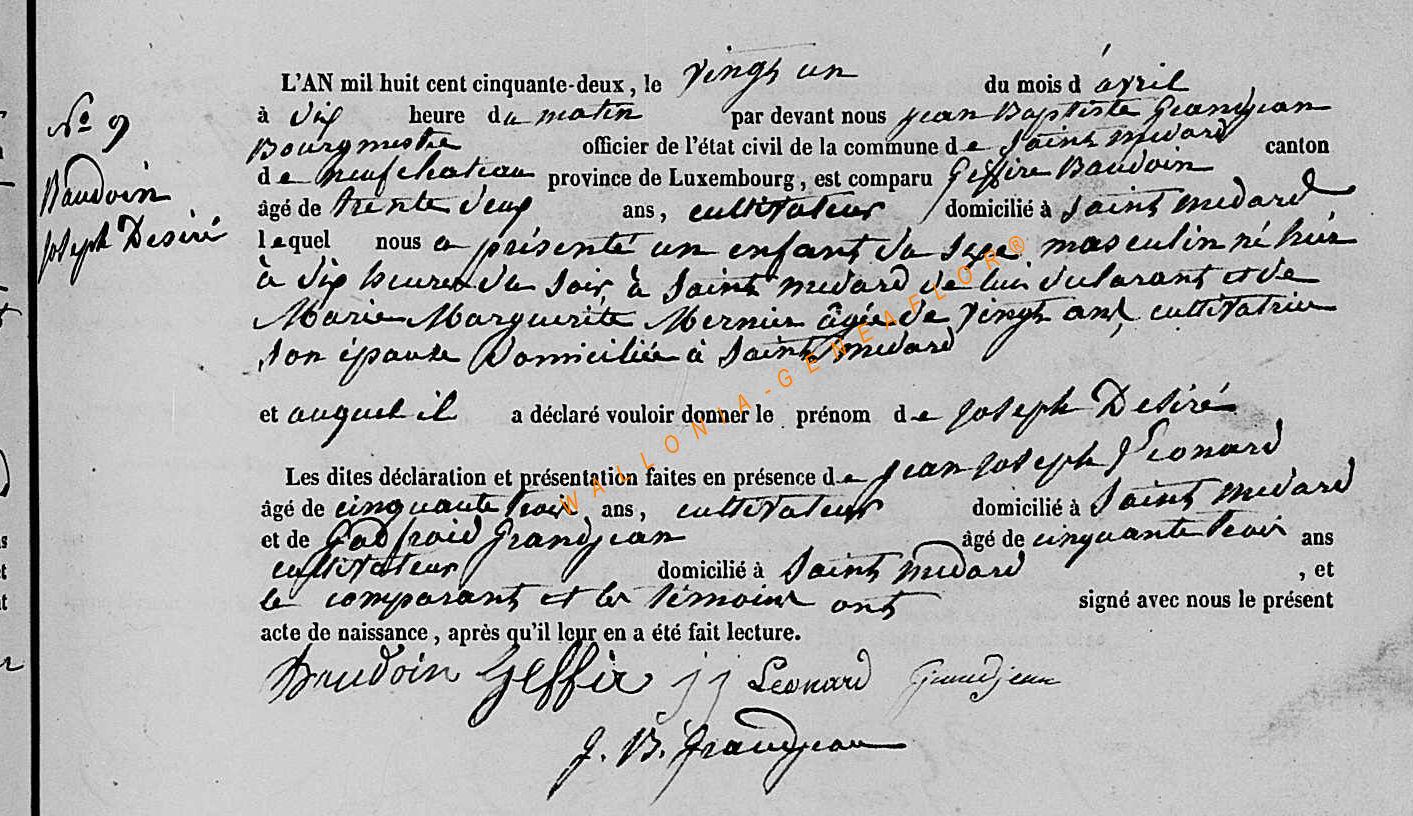 N° 9
Baudoin
Joseph Desiré
L'AN mil huit cent cinquante-deux, le vingt un du mois d'avril
à dix heure du matin par devant nous jean Baptiste Grandjean
Bourgmestre officier de l'état civil de la commune de Saint medard canton
de neufchateau province de Luxembourg, est comparu Geffire Baudoin
âgé de trente deux ans, cultivateur domicilié à Saint medard
lequel nous a présenté un enfant du sexe masculin né hier
à dix heures du soir à Saint medard de lui déclarant et de
Marie Marguerite Mernier âgée de vingt ans, cultivatrice
son épouse domiciliée à Saint medard
et auquel il a déclaré vouloir donner le prénom de Joseph Desiré
Les dites déclaration et présentation faites en présence de jean joseph Leonard
âgé de cinquante trois ans, cultivateur domicilié à Saint medard
et de Godfroid Grandjean âgé de cinquante trois ans
cultivateur domicilié à Saint medard, et
le comparant et les témoins ont signé avec nous le présent
acte de naissance, après qu'il leur en a été fait lecture.
Baudoin Geffir jj Leonard Grandjean
J. B. Grandjean
WALLONIA-GENEAFLOR®